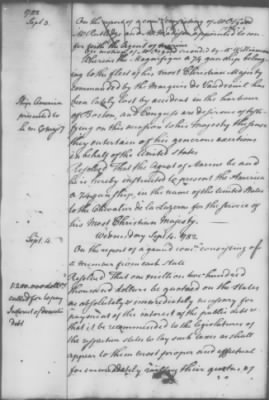 1782
Sept 3.
On the report of a com consisting of Mr Osgood
Mr Rutledge and Mr Madison appointed to con-
fer with the Agent of Marine
On motion of Mr Osgood seconded by Mr Williamson
Whereas the Magnifique a 74 gun ship belong-
ing to the fleet of his most Christian Majesty
commanded by the Marquis de Vaudreuil has
been lately lost by accident in the harbour
of Boston, and Congress are desirous of testi-
fying on this occasion to his Majesty the sense
they entertain of his generous exertions
in behalf of the United States
Ship America
presented to
his m C. Majesty
Resolved That the Agent of Marine be and
he is hereby instructed to present the America
a 74 gun ship in the name of the United States
to the Chevalier de la Luzerne for the service of
his Most Christian Majesty.
Sept. 4.
Wednesday Sept. 4. 1782.
On the report of a grand com consisting of
a member from each State
1,200,000 dollars
called for to pay
Interest of domestic
debt
Resolved That one million two hundred
thousand dollars be quotaed on the States
as absolutely & immediately necessary for
payment of the interest of the public debt &
that it be recommended to the legislatures of
the respective states to lay such taxes as shall
appear to them most proper and effectual
for immediately raising their quotas of